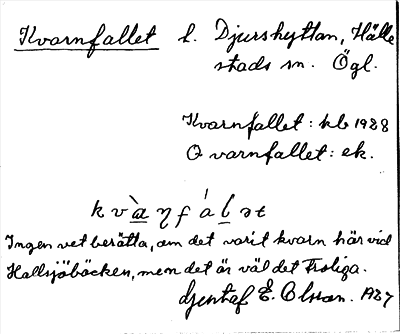 Kvarnfallet l. Djurshyttan, Hälle
stads sn. Ögl.
Kvarnfallet: kb 1928
Qvarnfallet: ek.
kv̀aŋfálət
Ingen vet berätta, om det varit kvarn här vid
Hallsjöbäcken, men det är väl det troliga.
Gustaf E. Olsson. 1927